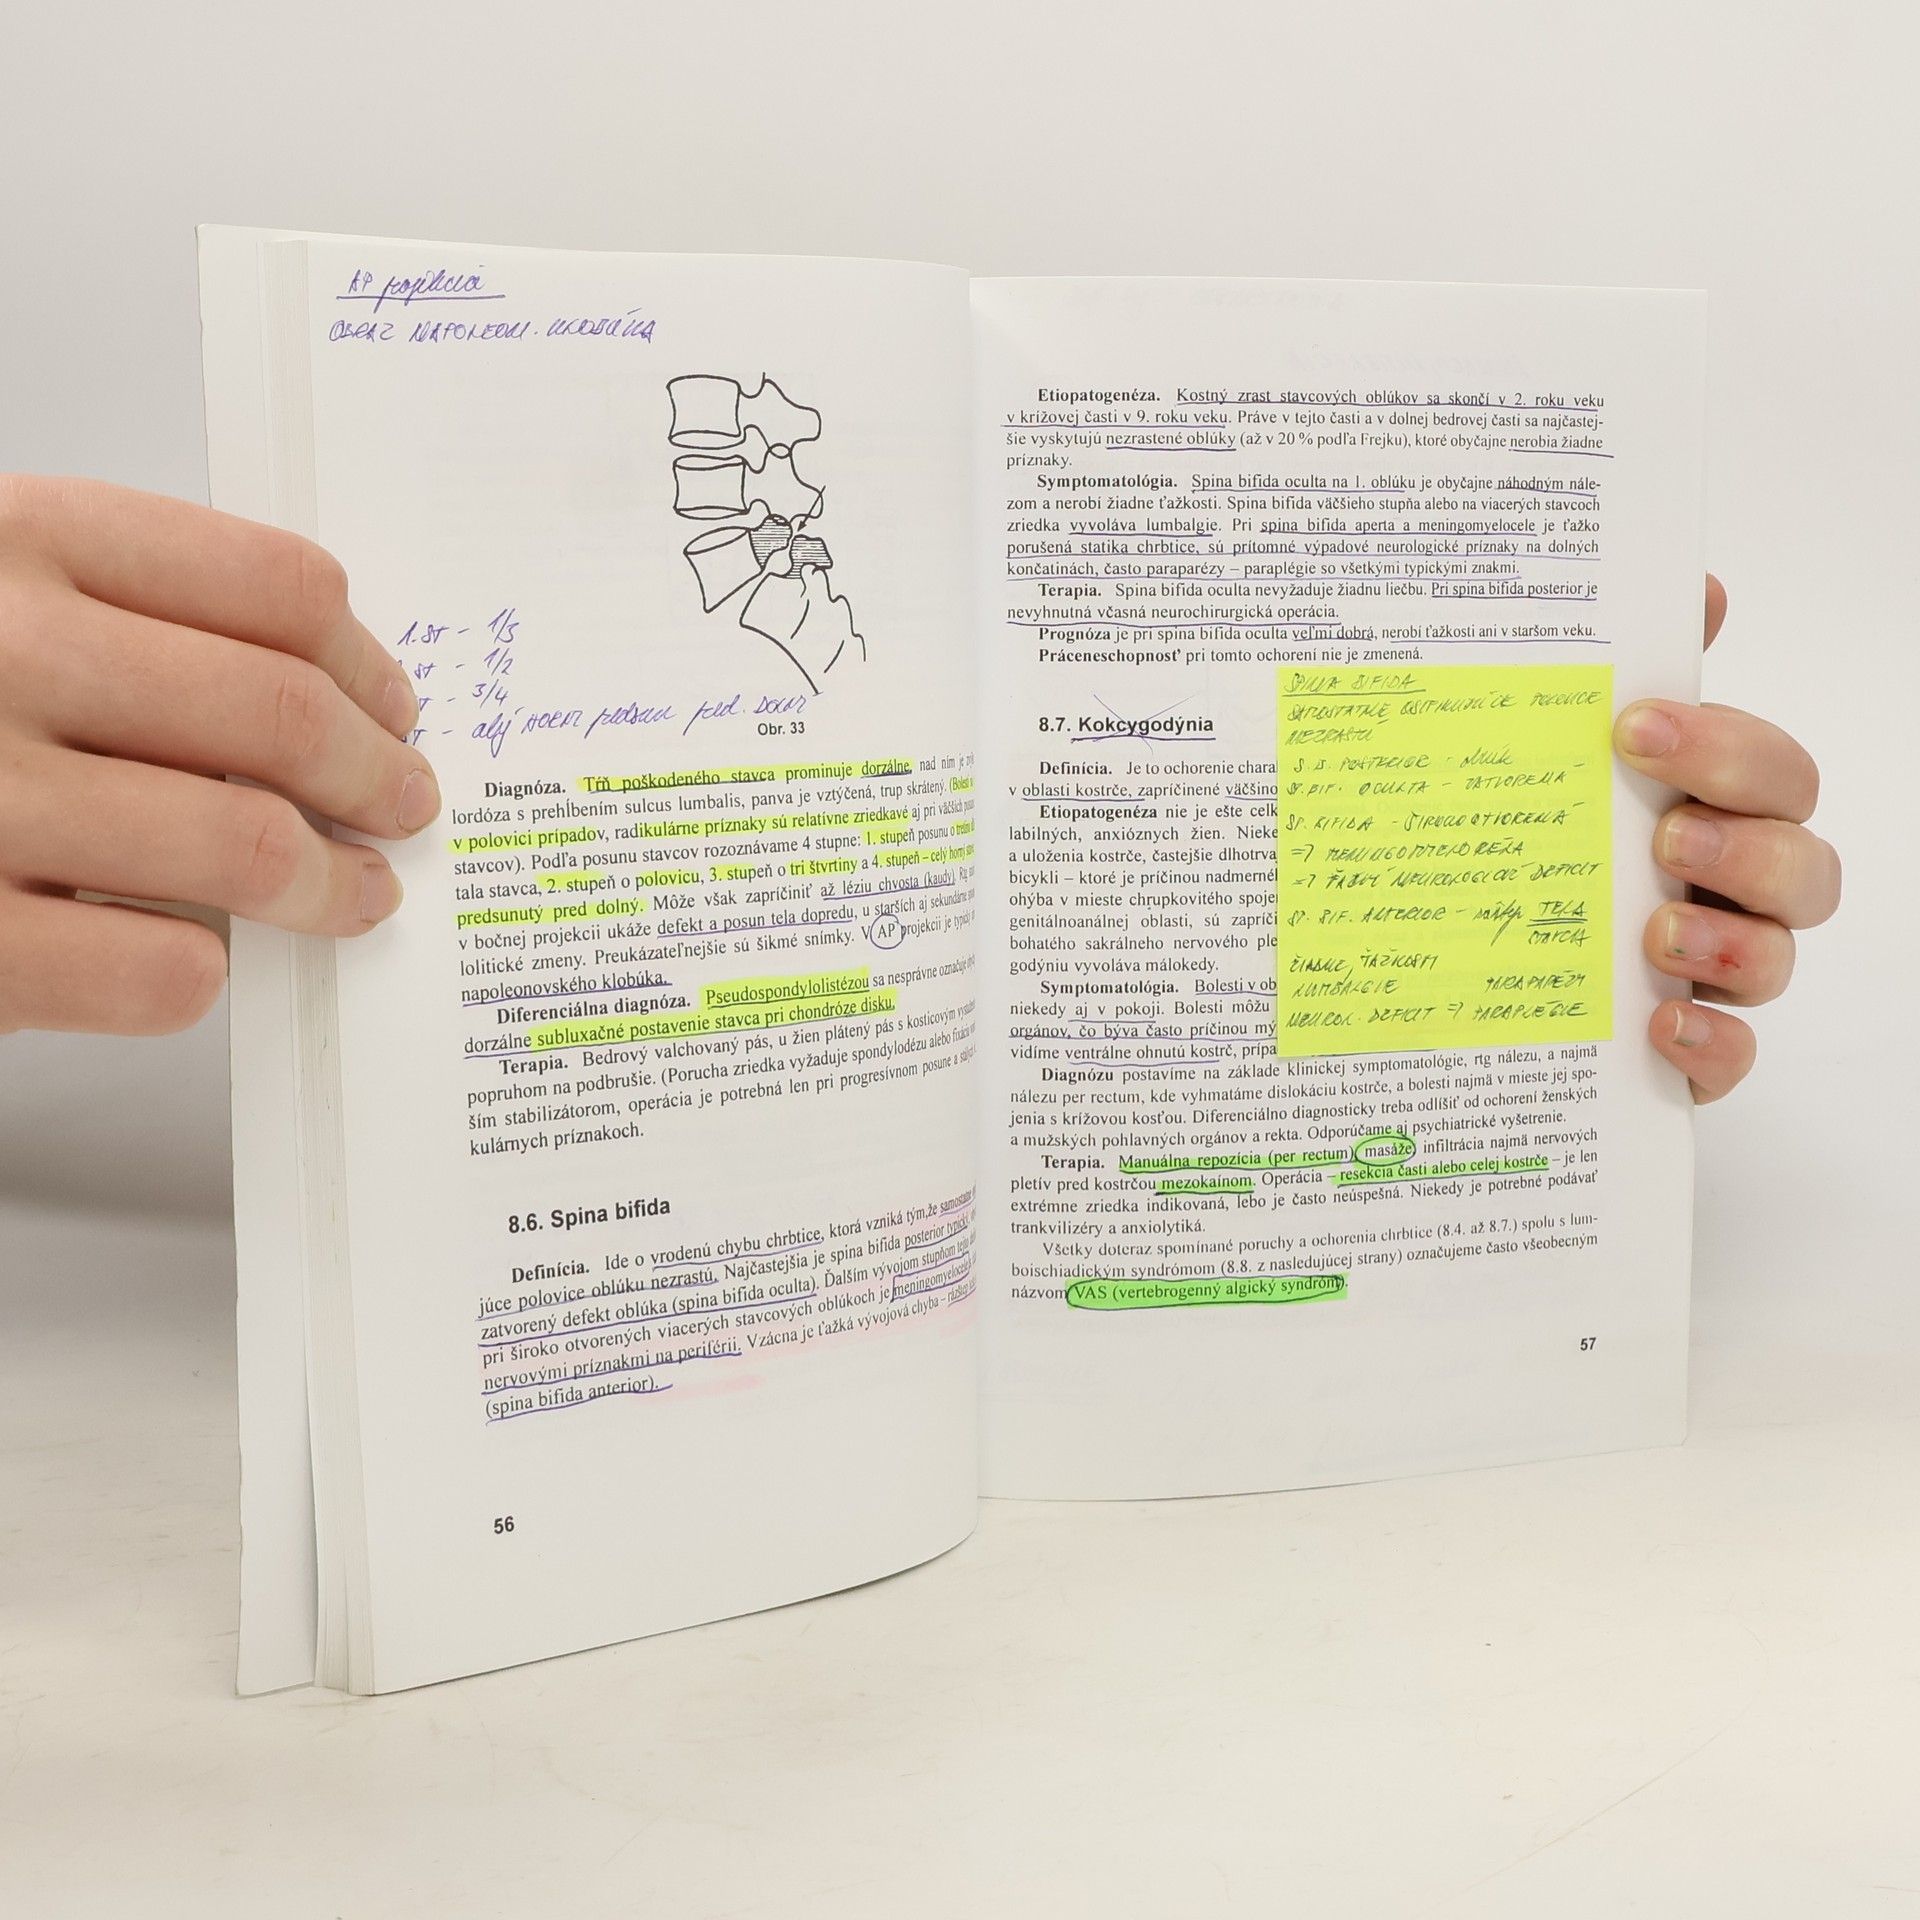 AP projekcia
OBRAZ NAPOLEON. KLOBÚKA
1. ST - 1/3
ST - 1/2
- 3/4
- celý HORNÝ pred. DOLNÝ
Obr. 33
Diagnóza. Tŕň poškodeného stavca prominuje dorzálne, nad ním je
lordóza s prehĺbením sulcus lumbalis, panva je vztýčená, trup skrátený. (Bolesti
v polovici prípadov, radikulárne príznaky sú relatívne zriedkavé aj pri väčších
stavcov). Podľa posunu stavcov rozoznávame 4 stupne: 1. stupeň posunu o tretinu
tala stavca, 2. stupeň o polovicu, 3. stupeň o tri štvrtiny a 4. stupeň – celý horný
predsunutý pred dolný. Môže však zapríčiniť až léziu chvosta (kaudy). Rtg
v bočnej projekcii ukáže defekt a posun tela dopredu, u starších aj sekundárne
lolitické zmeny. Preukázateľnejšie sú šikmé snímky. V AP projekcii je typický
napoleonovského klobúka.
Diferenciálna diagnóza. Pseudospondylolistézou sa nesprávne označuje
dorzálne subluxačné postavenie stavca pri chondróze disku.
Terapia. Bedrový valchovaný pás, u žien plátený pás s kosticovým
popruhom na podbrušie. (Porucha zriedka vyžaduje spondylodézu alebo fixáciu
ším stabilizátorom, operácia je potrebná len pri progresívnom posune a
kulárnych príznakoch.
8.6. Spina bifida
Definícia. Ide o vrodenú chybu chrbtice, ktorá vzniká tým,že samostatne
júce polovice oblúku nezrastú. Najčastejšia je spina bifida posterior typický,
zatvorený defekt oblúka (spina bifida oculta). Ďalším vývojom stupňom tejto
pri široko otvorených viacerých stavcových oblúkoch je meningomyelocele
nervovými príznakmi na periférii. Vzácna je ťažká vývojová chyba – rázštep
(spina bifida anterior).
56
Etiopatogenéza. Kostný zrast stavcových oblúkov sa skončí v 2. roku veku
v krížovej časti v 9. roku veku. Práve v tejto časti a v dolnej bedrovej časti sa najčastej-
šie vyskytujú nezrastené oblúky (až v 20 % podľa Frejku), ktoré obyčajne nerobia žiadne
príznaky.
Symptomatológia. Spina bifida oculta na 1. oblúku je obyčajne náhodným nále-
zom a nerobí žiadne ťažkosti. Spina bifida väčšieho stupňa alebo na viacerých stavcoch
zriedka vyvoláva lumbalgie. Pri spina bifida aperta a meningomyelocele je ťažko
porušená statika chrbtice, sú prítomné výpadové neurologické príznaky na dolných
končatinách, často paraparézy – paraplégie so všetkými typickými znakmi.
Terapia. Spina bifida oculta nevyžaduje žiadnu liečbu. Pri spina bifida posterior je
nevyhnutná včasná neurochirurgická operácia.
Prognóza je pri spina bifida oculta veľmi dobrá, nerobí ťažkosti ani v staršom veku.
Práceneschopnosť pri tomto ochorení nie je zmenená.
8.7. Kokcygodýnia
Definícia. Je to ochorenie chara
v oblasti kostrče, zapríčinené väčšino
Etiopatogenéza nie je ešte celk
labilných, anxióznych žien. Nieke
a uloženia kostrče, častejšie dlhotrva
bicykli – ktoré je príčinou nadmerné
ohýba v mieste chrupkovitého spoje
genitálnoanálnej oblasti, sú zapríči
bohatého sakrálneho nervového ple
godýniu vyvoláva málokedy.
Symptomatológia. Bolesti v ob
niekedy aj v pokoji. Bolesti môžu
orgánov, čo býva často príčinou mý
vidíme ventrálne ohnutú kostrč, prípa
SPINA BIFIDA
SAMOSTATNE OSIFIKUJÚCE POLOVICE
NEZRASTÚ
S. B. POSTERIOR - oblúk
SP. BIF. OCULTA - ZATVORENÁ
SP. BIFIDA - ŠIROKOOTVORENÁ
=> MENINGOMYELOKELA
=> ŤAŽKÝ NEUROLOGICKÝ DEFICIT
SP. BIF. ANTERIOR - rázštep TELA
STAVCA
ŽIADNE, ŤAŽKOSTI
LUMBALGIE PARAPARÉZY
NEUROL. DEFICIT => PARAPLÉGIE
Diagnózu postavíme na základe klinickej symptomatológie, rtg nálezu, a najmä
nálezu per rectum, kde vyhmatáme dislokáciu kostrče, a bolesti najmä v mieste jej spo-
jenia s krížovou kosťou. Diferenciálno diagnosticky treba odlíšiť od ochorení ženských
a mužských pohlavných orgánov a rekta. Odporúčame aj psychiatrické vyšetrenie.
Terapia. Manuálna repozícia (per rectum), masáže, infiltrácia najmä nervových
pletív pred kostrčou mezokaínom. Operácia – resekcia časti alebo celej kostrče – je len
extrémne zriedka indikovaná, lebo je často neúspešná. Niekedy je potrebné podávať
trankvilizéry a anxiolytiká.
Všetky doteraz spomínané poruchy a ochorenia chrbtice (8.4. až 8.7.) spolu s lum-
boischiadickým syndrómom (8.8. z nasledujúcej strany) označujeme často všeobecným
názvom VAS (vertebrogenný algický syndróm).
57